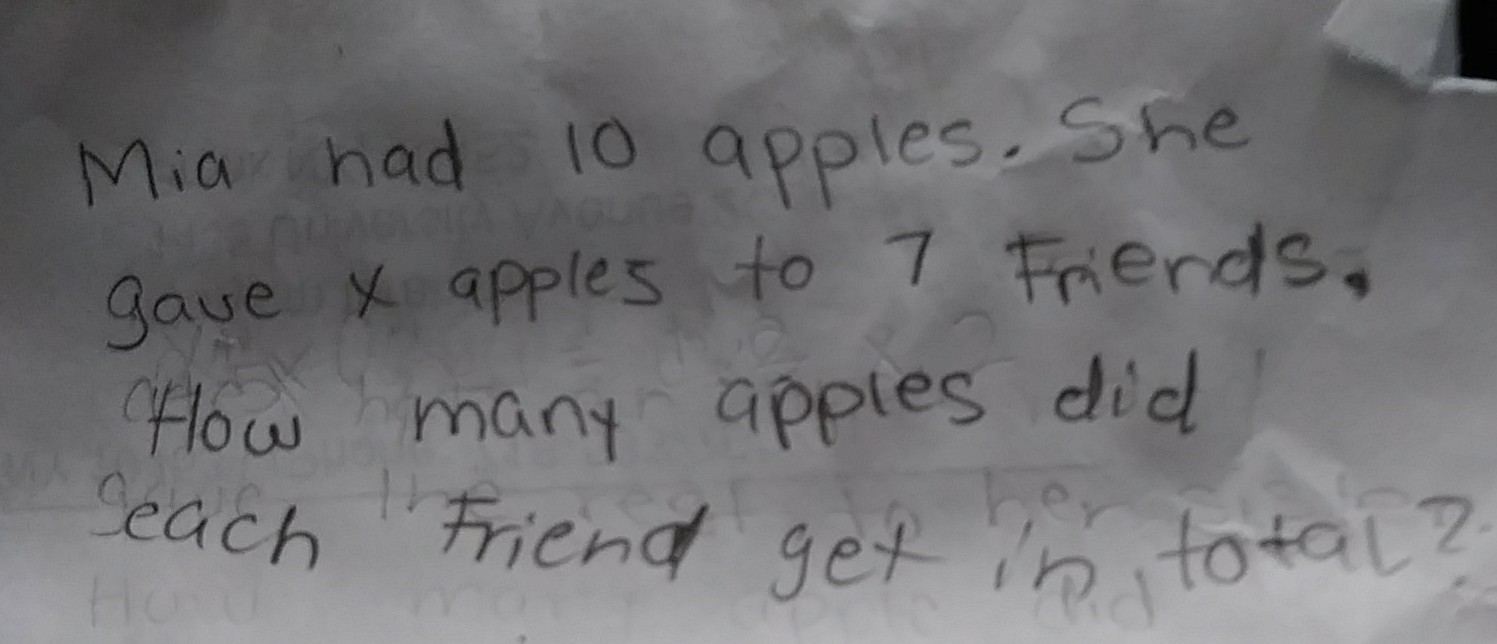 Mia had 10 apples. She
gave x apples to 7 Friends.
How many apples did
each Friend get in total?